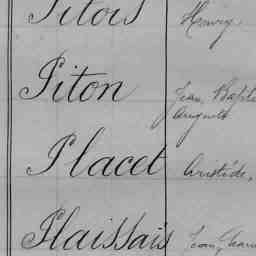 Pitois Henry
Piton Jean, Baptiste
Auguste
Placet Aristide,
Plaissais Jean, Charles